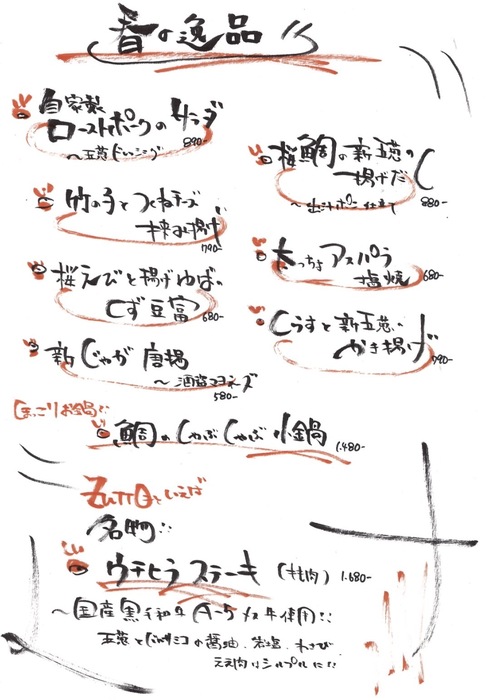 春の逸品
自家製
ローストポークのサラダ
890-
〜玉葱ドレッシング
竹の子とつくねチーズ
挟み揚げ
790-
桜えびと揚げゆばの
くず豆富
680-
新じゃが 唐揚
〜酒盗マヨネーズ
580-
桜鯛の新玉葱の
揚げだし
〜出汁ポン仕立て
880-
太っちょアスパラ
塩焼
680-
しらすと新玉葱の
かき揚げ
790-
ほっこりお鍋
鯛のしゃぶしゃぶ小鍋
1,480-
といえば
名物
ウチヒラステーキ (もも肉) 1,680-
〜国産黒毛和牛A-5メス牛使用
玉葱とニンニクの醤油、岩塩、わさび